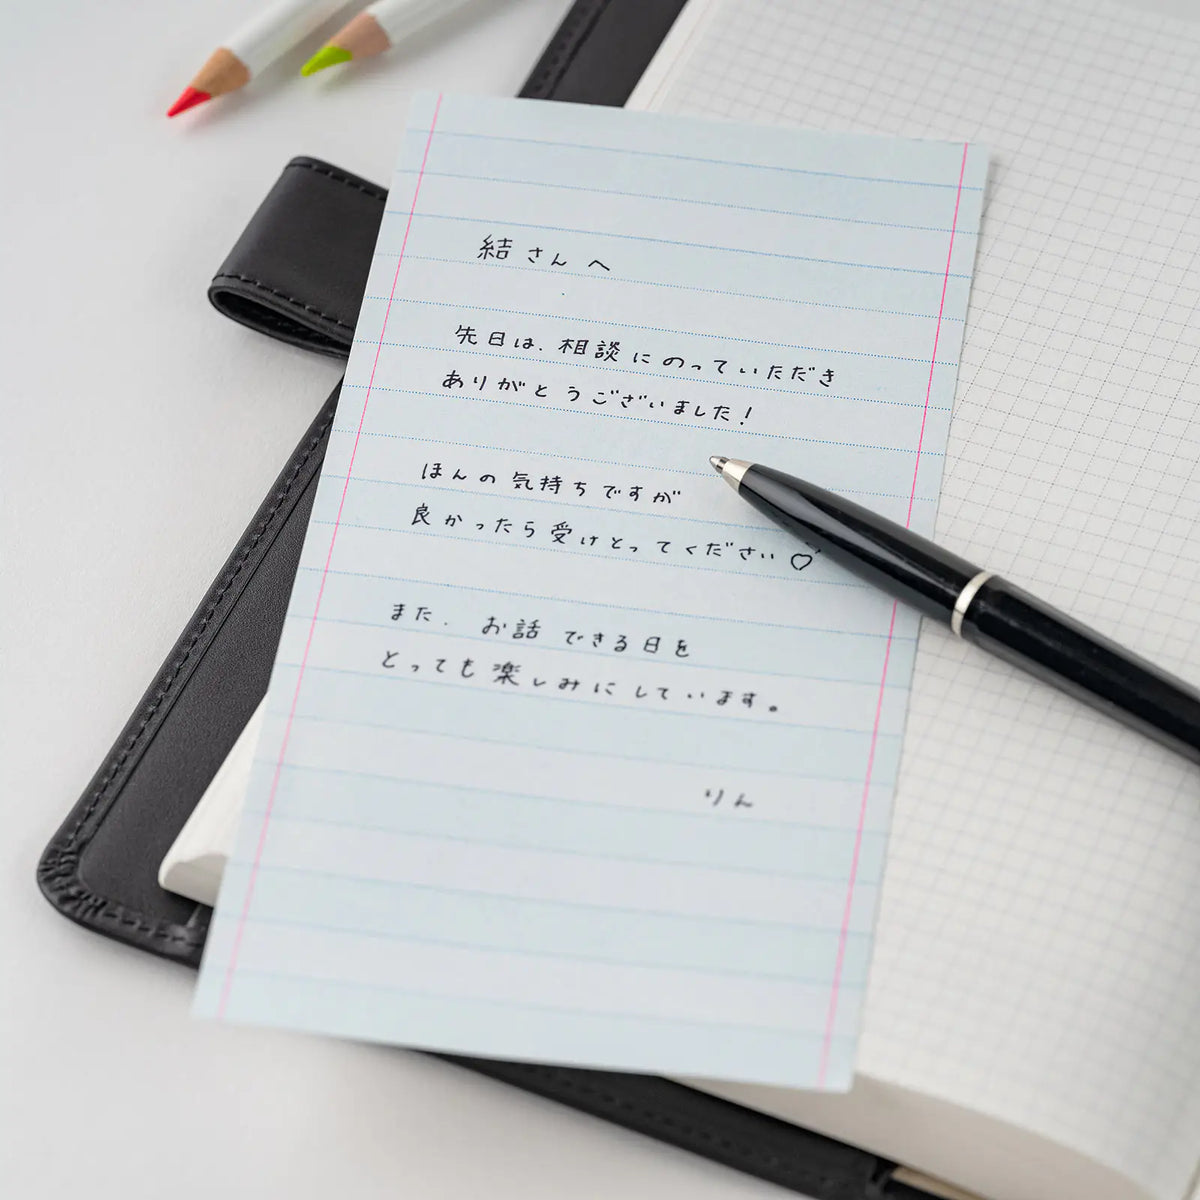 結さんへ
先日は、相談にのっていただき
ありがとうございました!
ほんの気持ちですが
良かったら受けとってください♡
また、お話できる日を
とっても楽しみにしています。
りん